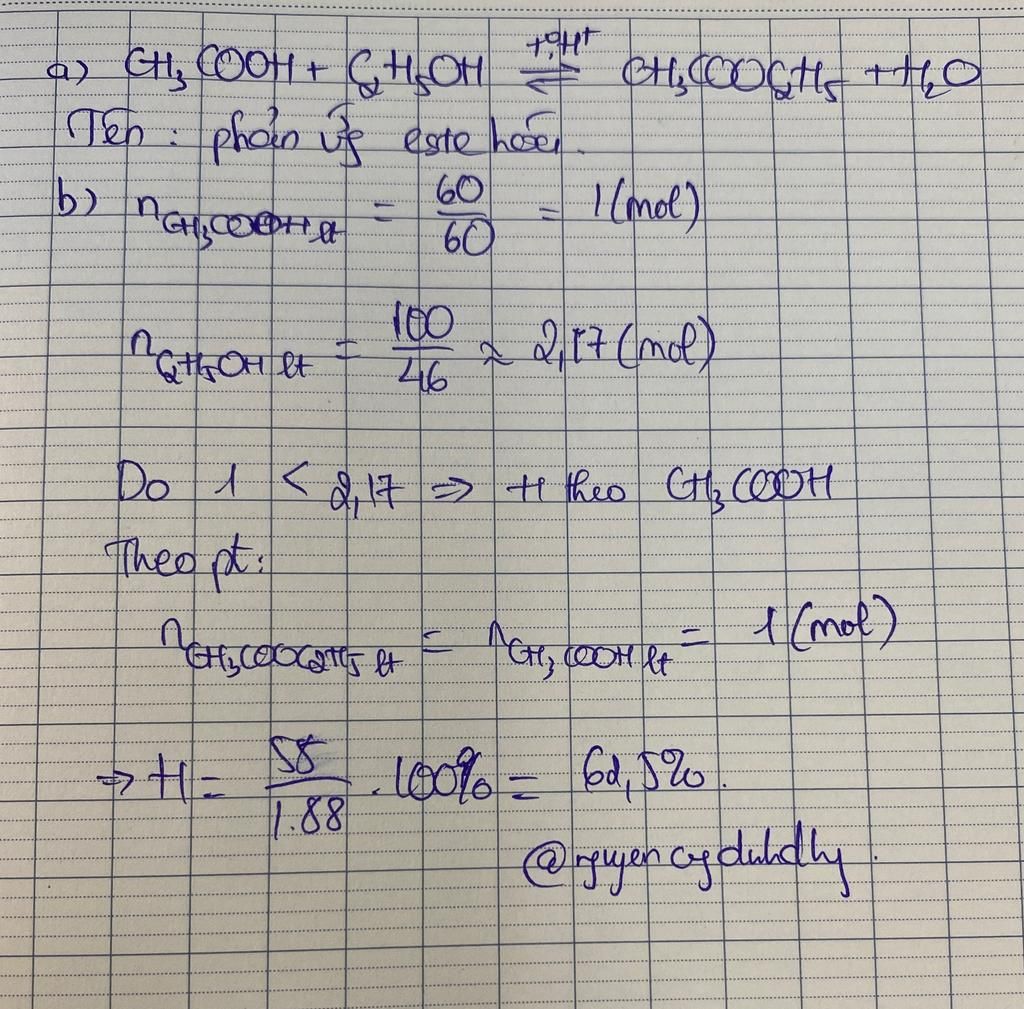 a) CH3COOH + C2H5OH ⇌ (t°, H+) CH3COOC2H5 + H2O
Tên : phản ứg este hóa.
b) nCH3COOH lt = 60/60 = 1 (mol)
nC2H5OH lt = 100/46 ≈ 2,17 (mol)
Do 1 < 2,17 ⇒ H theo CH3COOH
Theo pt:
nCH3COOC2H5 lt = nCH3COOH lt = 1 (mol)
⇒ H = 55/1.88 . 100% = 62,5%.